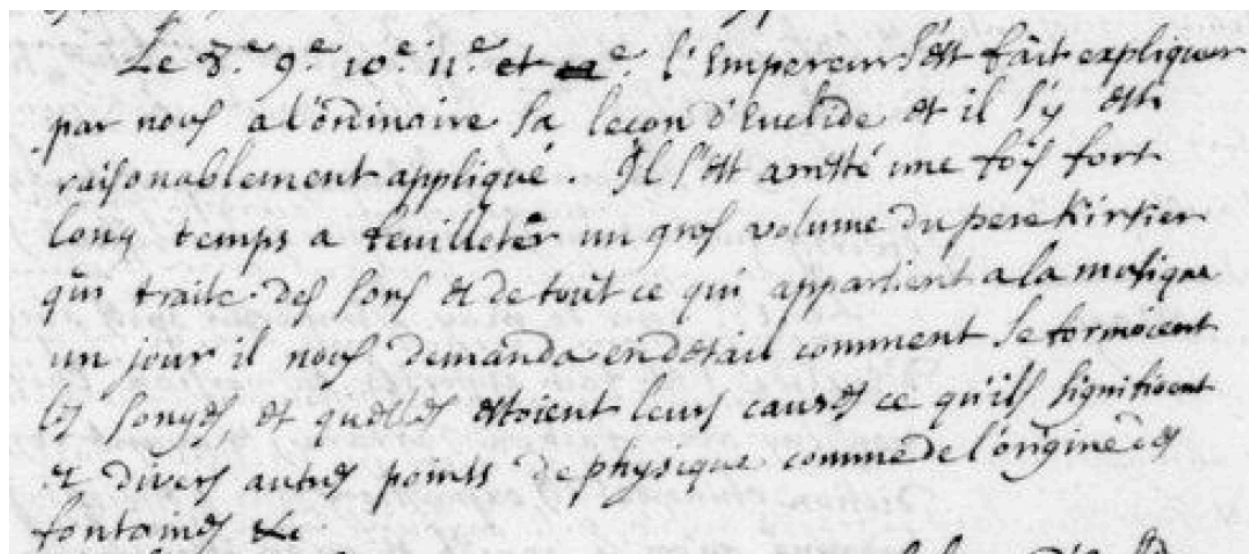 Le 8.e 9.e 10.e 11.e et 12.e l'Empereur s'est fait expliquer
par nous a l'ordinaire sa leçon d'Euclide et il s'y est
raisonablement appliqué. Il s'est arresté une fois fort
long temps a feuilleter un gros volume du pere Kirker
qui traite des sons et de tout ce qui appartient a la musique
un jour il nous demanda en detail comment se formoient
les songes et quelles estoient leurs causes ce qu'ils signifioent
et divers autres points de physique comme de l'origine des
fontaines &c.